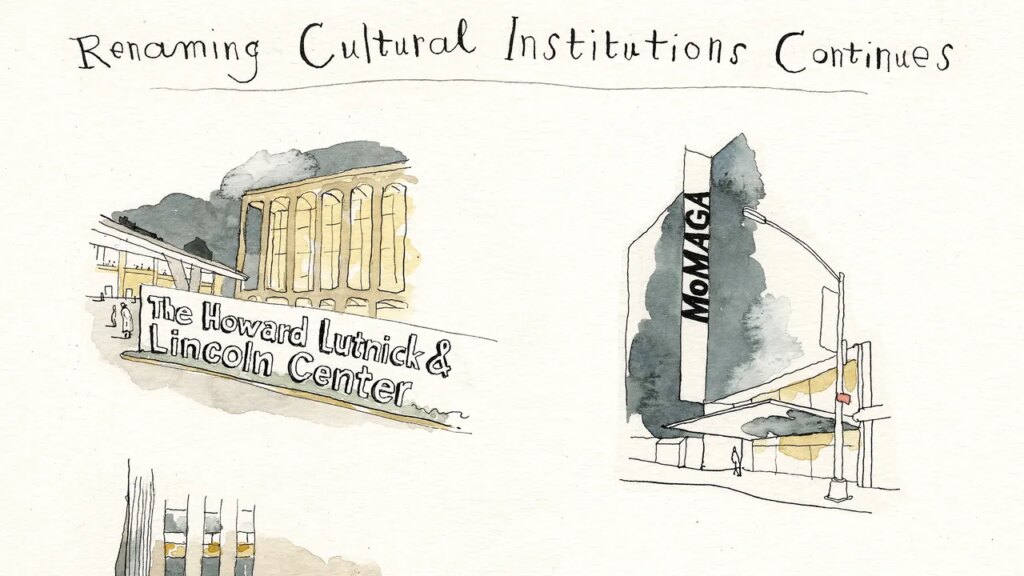 Renaming Cultural Institutions Continues
The Howard Lutnick &
Lincoln Center
MoMAGA